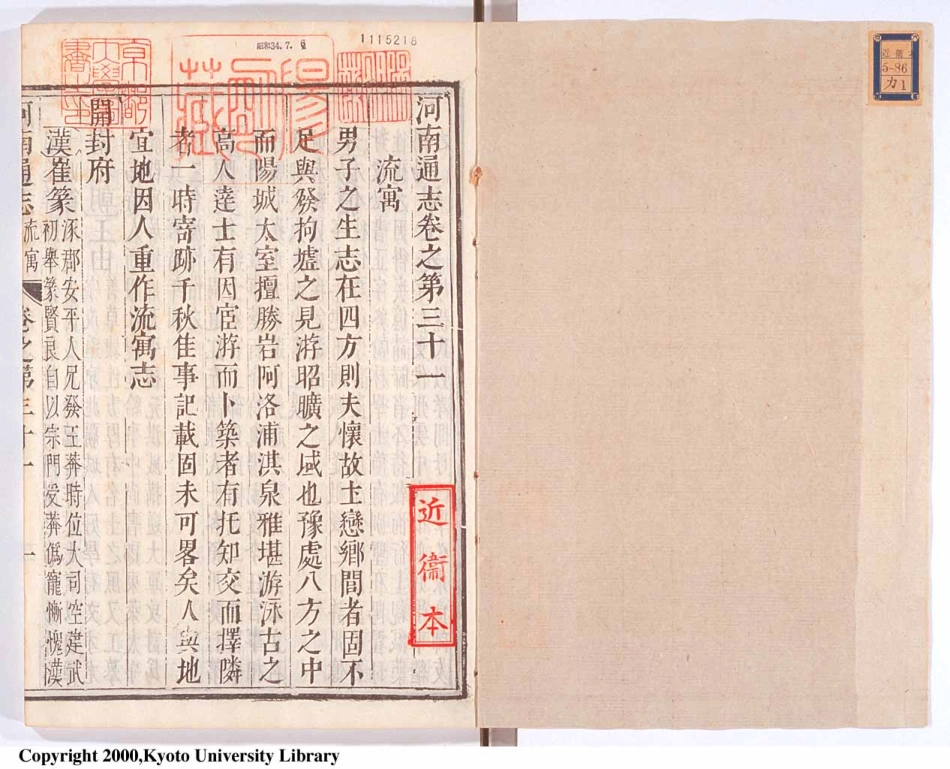 河南通志卷之第三十一
流寓
男子之生志在四方則夫懷故土戀鄉間者固不
足與發拘墟之見游昭曠之域也豫處八方之中
而陽城太室擅勝岩阿洛浦淇泉雅堪游泳古之
高人達士有因宦游而卜築者有托知交而擇隣
者一時寄跡千秋佳事記載固未可畧矣人與地
宜地因人重作流寓志
開封府
漢崔篆
涿郡安平人兄發王莽時位大司空建武
初舉篆賢良自以宗門受莽偽寵慚愧漢
河南通志
流寓
卷之第三十一
一
近衞本
昭和34.7.
1115218
近衞
5-86
カ1
京都
大學
Copyright 2000,Kyoto University Library